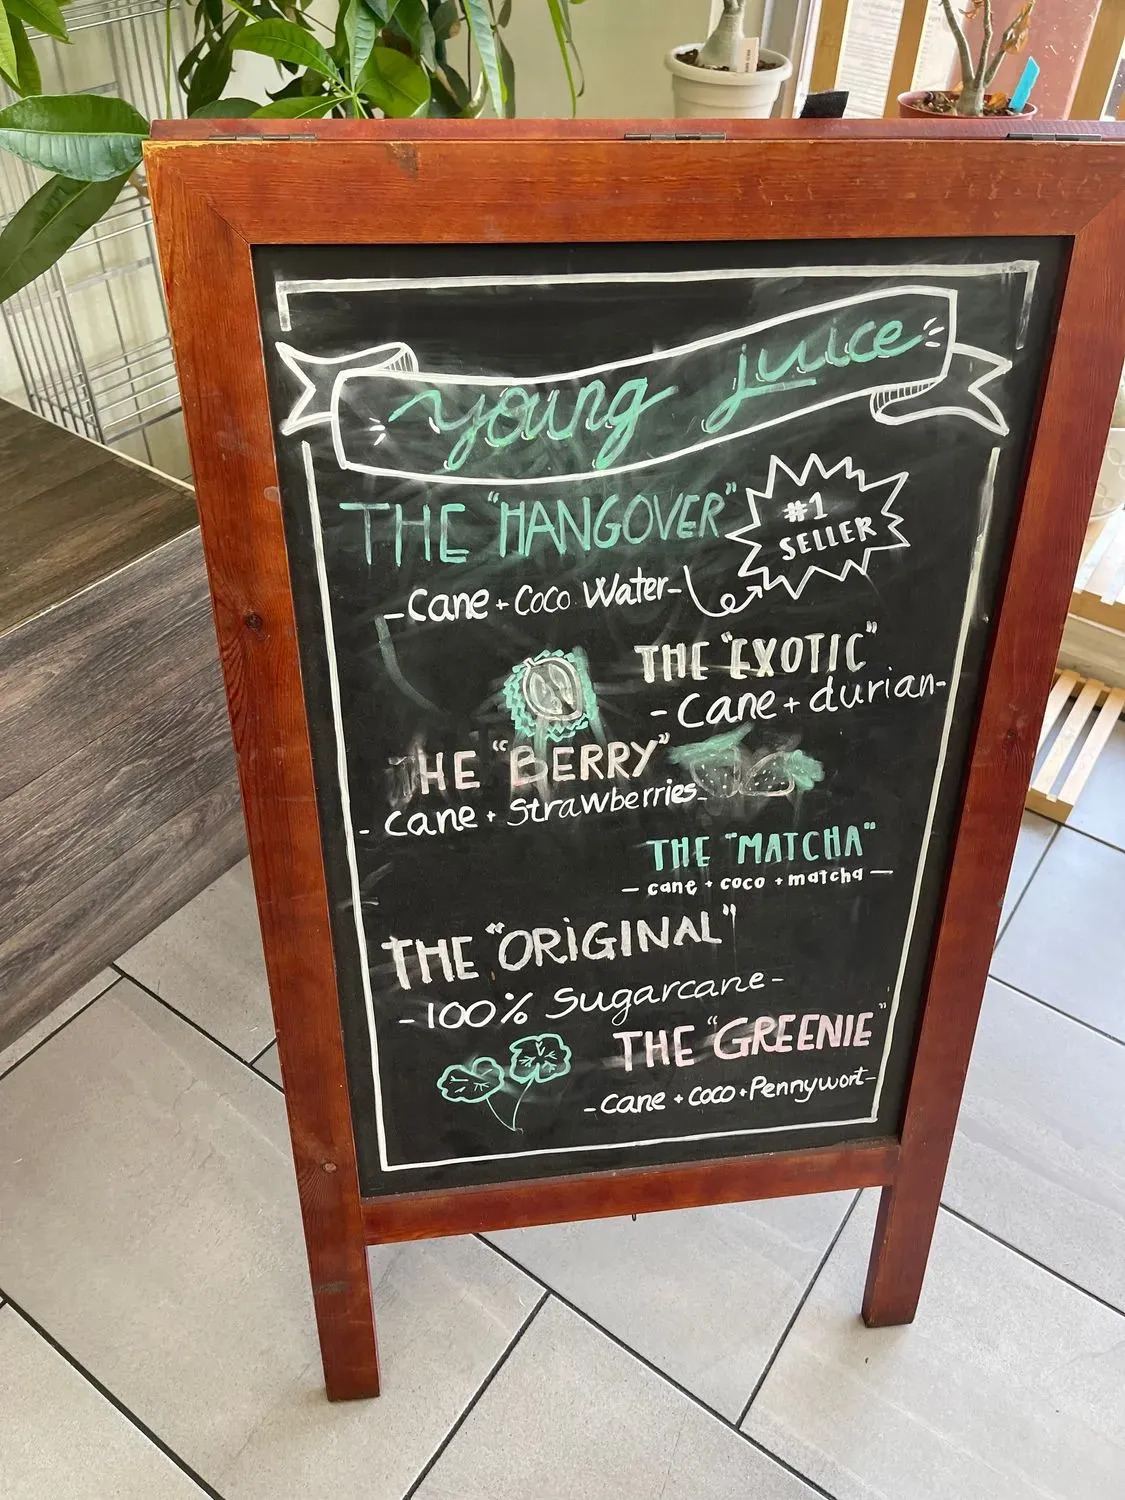 young juice
THE "HANGOVER"
#1
SELLER
-Cane + Coco Water-
THE "EXOTIC"
- Cane + durian-
THE "BERRY"
- Cane + Strawberries-
THE "MATCHA"
- cane + coco + matcha -
THE "ORIGINAL"
-100% Sugarcane-
THE "GREENIE"
-Cane + Coco + Pennywort-